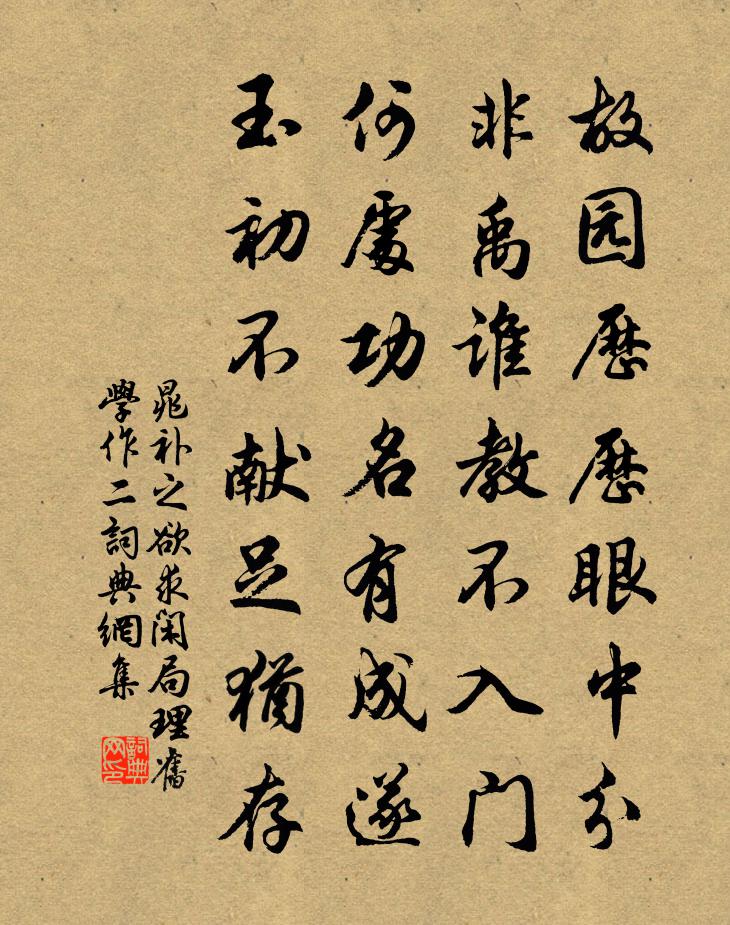 故园歷歷眼中分
非禹谁教不入门
何處功名有成遂
玉初不献足猶存
晁补之欲求閑局理舊
學作二詞典網集
詞典网印